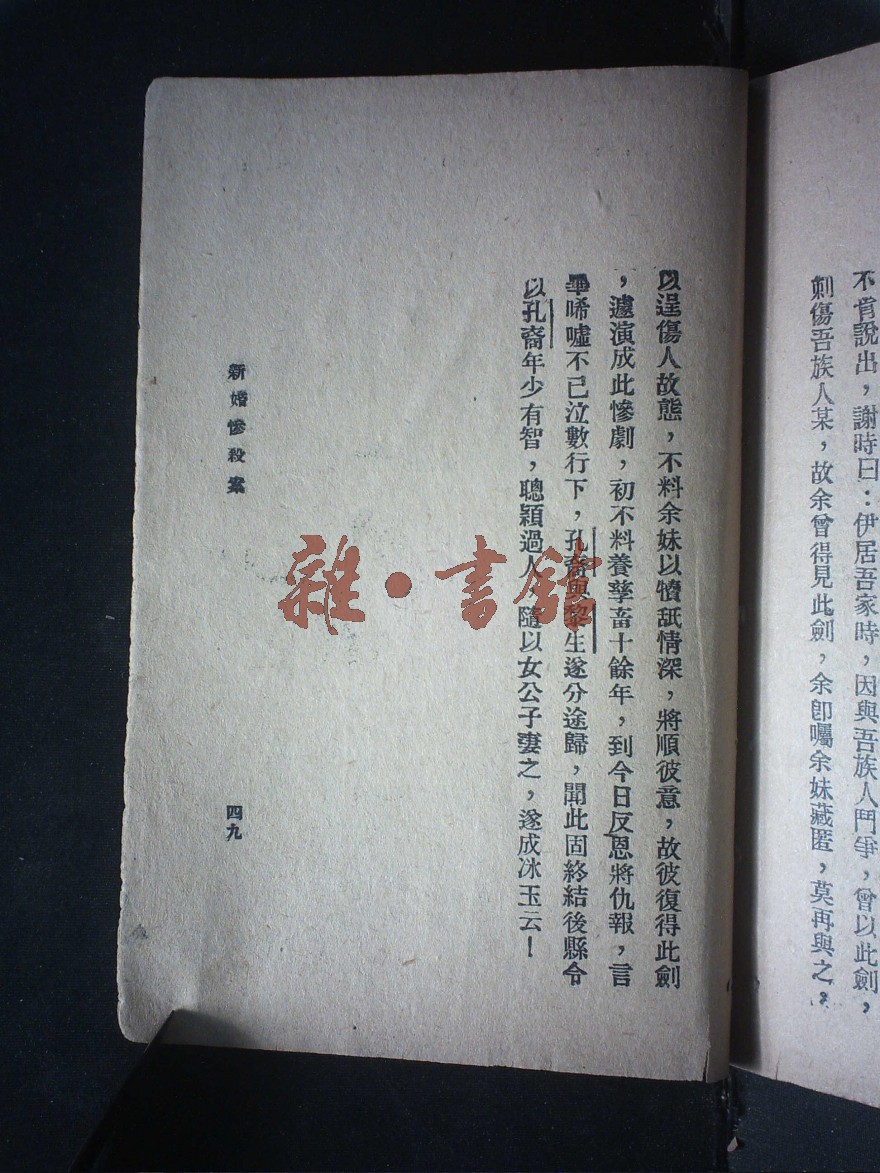 不肯說出，謝時曰：伊居吾家時，因與吾族人鬥爭，曾以此劍，
刺傷吾族人某，故余曾得見此劍，余卽囑余妹藏匿，莫再與之。
以逞傷人故態，不料余妹以犢舐情深，將順彼意，故彼復得此劍
，遽演成此慘劇，初不料養孽畜十餘年，到今日反恩將仇報，言
畢唏噓不已泣數行下，孔裔與黎生遂分途歸，聞此固終結後縣令
以孔裔年少有智，聰穎過人，隨以女公子妻之，遂成冰玉云！
新婚慘殺案
四九
雜·書館